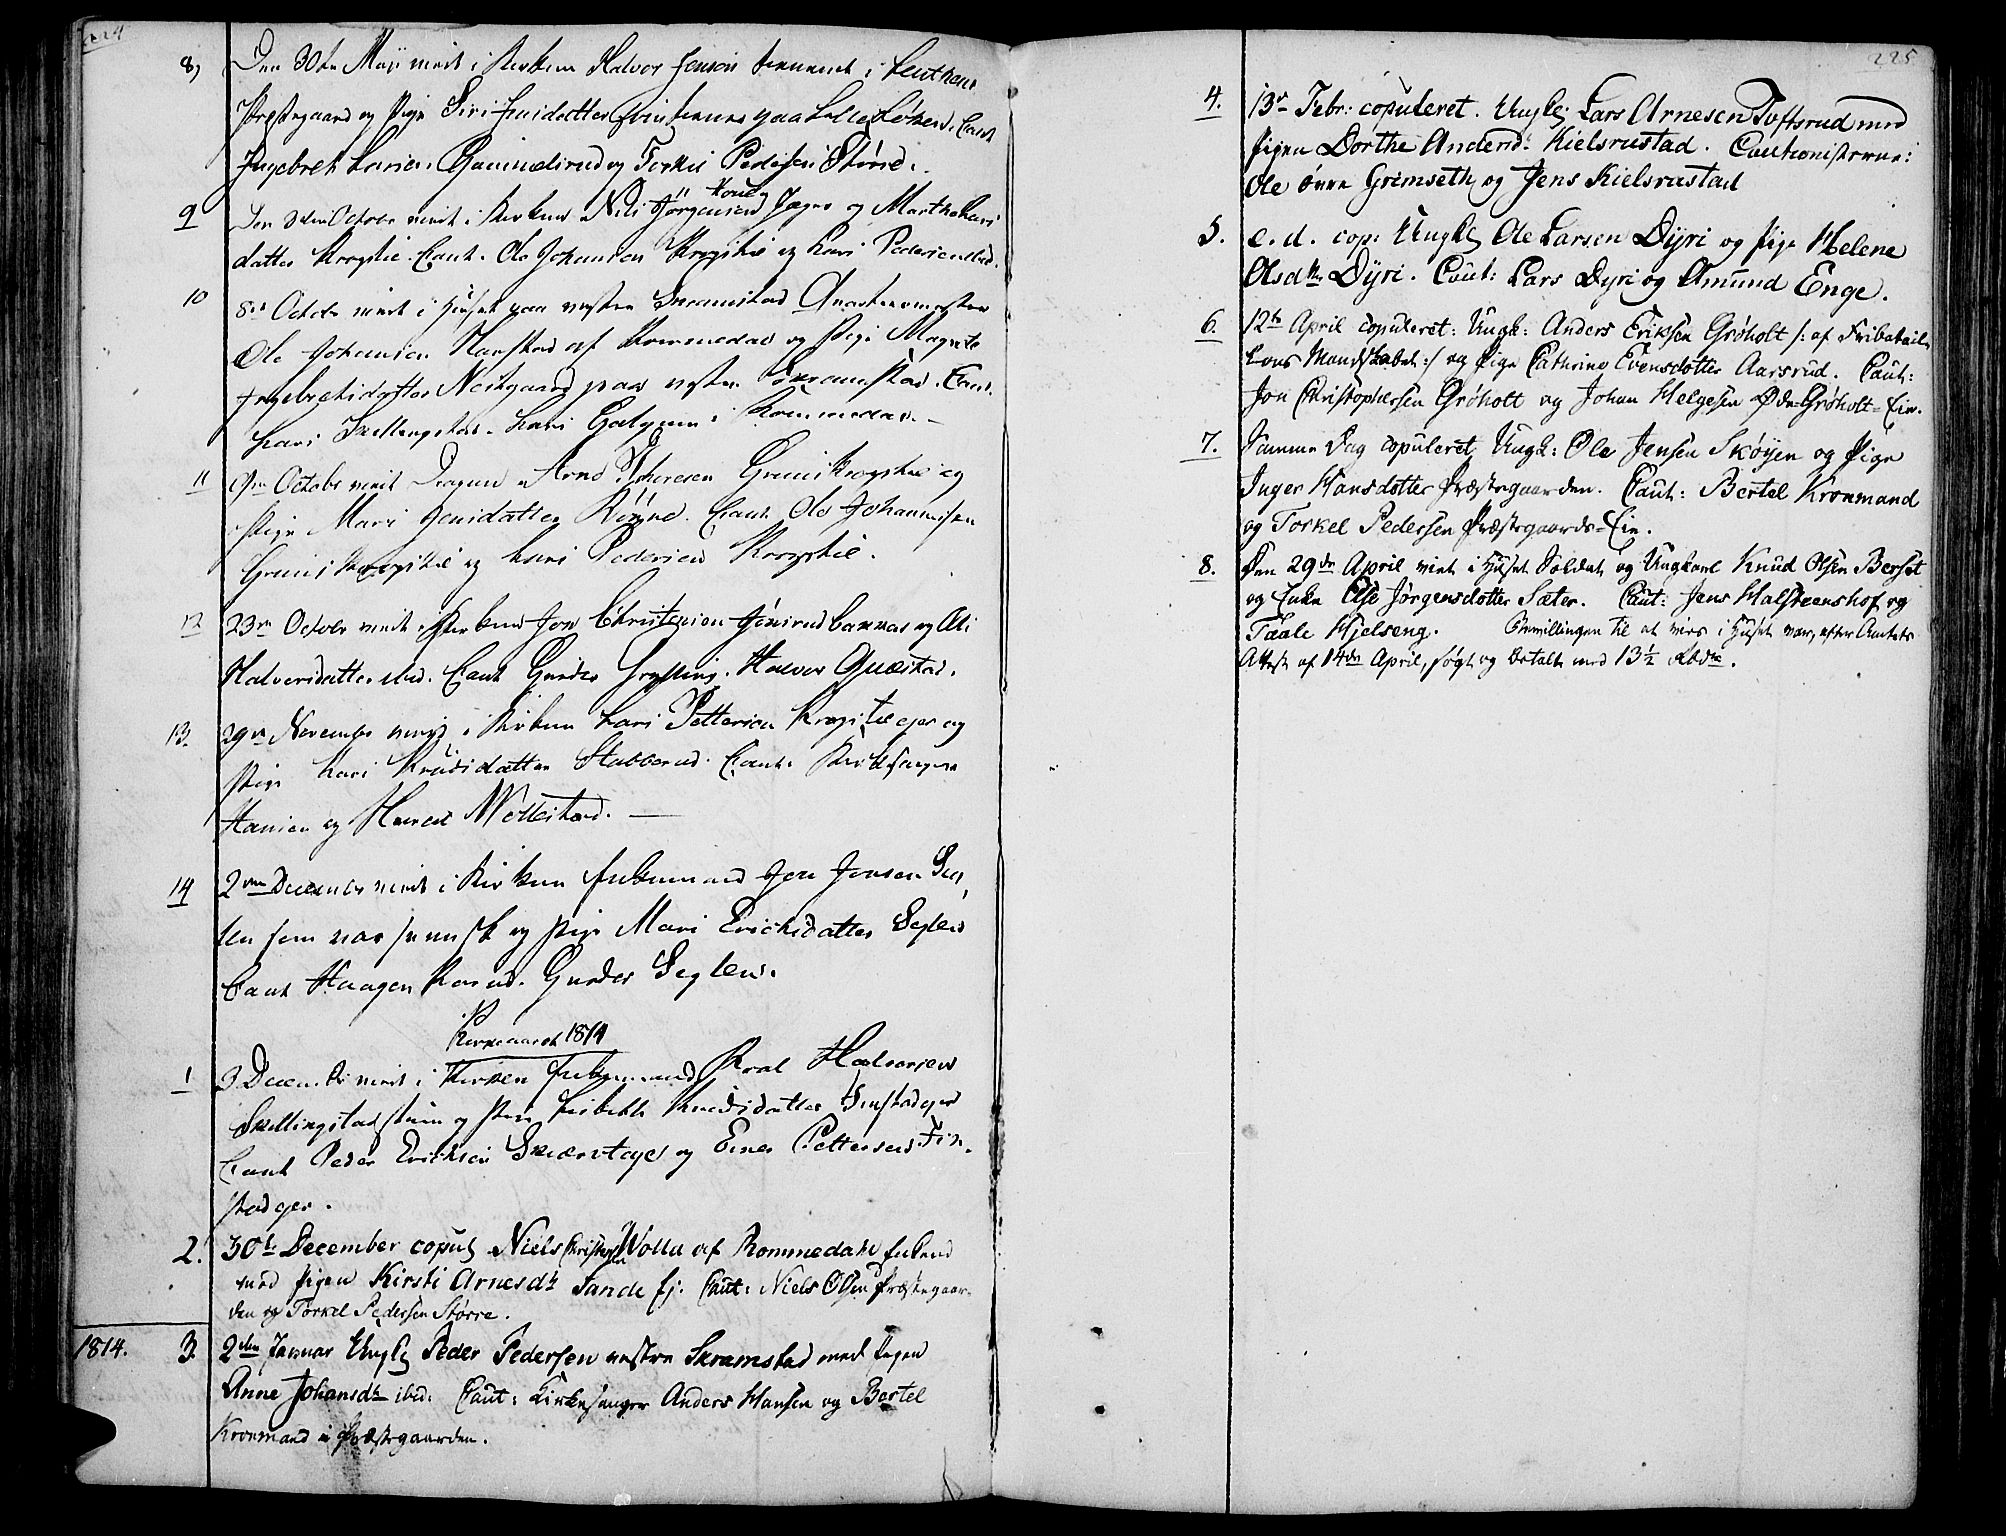 224
8) Den 30te Maji viedt i Kirken Halvor Jensen tienende i Leuthens
Præstegaard og Pige Siri
Ingebret Larsen Gammelsrud og Torkil Pedersen Større.
9 Den October viedt i Kirken Nils Jörgensen Jæger og Marthe Lars
datter Kropstie. Caut. Ole Johansen Kropstie og Lars Pedersen ibid.
10 8de Octobr viedt i Huset paa vestre Skramstad Qvarteermester
Ole Johansen Harstad af Rommedal og Pige Magnete
Ingebretsdatter Neutgaard paa vestre Skramstad. Caut.
Lars Skellingstad. Lars i Rommedal. –
11 9de Octobr viedt Dragun Arne Iversen Grimskropstie og
Pige Mari Jensdatter Caut. Ole Johannesen
Grimskropstie og Lars Pedersen Kropstie.
12 23de Octobr viedt i Kirken Jon Christensen og
Halvorsdatter ibid. Caut Halvor Quæstad.
13. 29de November viedt i Kirken Lars Pettersen Kropstieejer og
Pige Kari Knudsdatter Stabberud. Caut. Kirkesanger
Hansen og Wollestad. –
14 2den December viedt i Kirken Enkemand Jon Jonsen Seg
len som var og Pige Mari Erichsdatter Seglen
Caut Haagen Gunder Seglen.
Kirkeaaret 1814
1 3 Decembr viedt i Kirken Enkemand Halvorsen
Skellingstad og Pige Lisbeth Knudsdatter Finstadejer
Caut Peder Erichsen og Einer Pettersen Fin-
stadejer.
2. 30te December copul. Niels Christophersen Wolla af Rommedahl Enkemd
med Pigen Kirsti Arnesdtr Sande Ej. Caut: Niels Olsen Præstegaar-
den og Torkel Pedersen Större.
1814. 3. 2den Januar Ungk. Peder Pedersen vestre Skramstad med Pigen
Anne Johansdtr ibid. Caut: Kirkesanger Anders Hansen og Bertel
Kronmand i Præstegaarden.
225
4. 13de Febr: copuleret. Ungk. Lars Arnesen Toftsrud med
Pigen Dorthe Andersd: Kielsrustad. Cautionisterne:
Ole övre Grimseth og Jens Kielsrustad
5. e. d. cop: Ungk. Ole Larsen Dÿri og Pige Helene
Olsdtr Dÿri. Caut: Lars Dyri og Amund Enge.
6. 12te April copuleret: Ungk: Anders Eriksen Gröholt /: af Fribatail-
lons Mandskabet :/ og Pige Cathrine Evensdotter Aarsrud. Caut:
Jon Christophersen Gröholt og Johan Helgesen Øde-Gröholt-Eie.
7. Samme Dag copuleret Ungk: Ole Jensen Skøyen og Pige
Inger Hansdotter Præstegaarden. Caut: Bertel Kronmand
og Torkel Pedersen Præstegaards-Eie.
8. Den 29de April viet i Huset Soldat og Ungkarl Knud Olsen Berset
og Enke Else Jørgensdotter Sæter. Caut: Jens Halsteenshof og
Taale Hjelseng. Bevillingen til at vies i Huset var, efter Amtets
Attest af 14de April, søgt og betalt med 13½ Rbdlr.